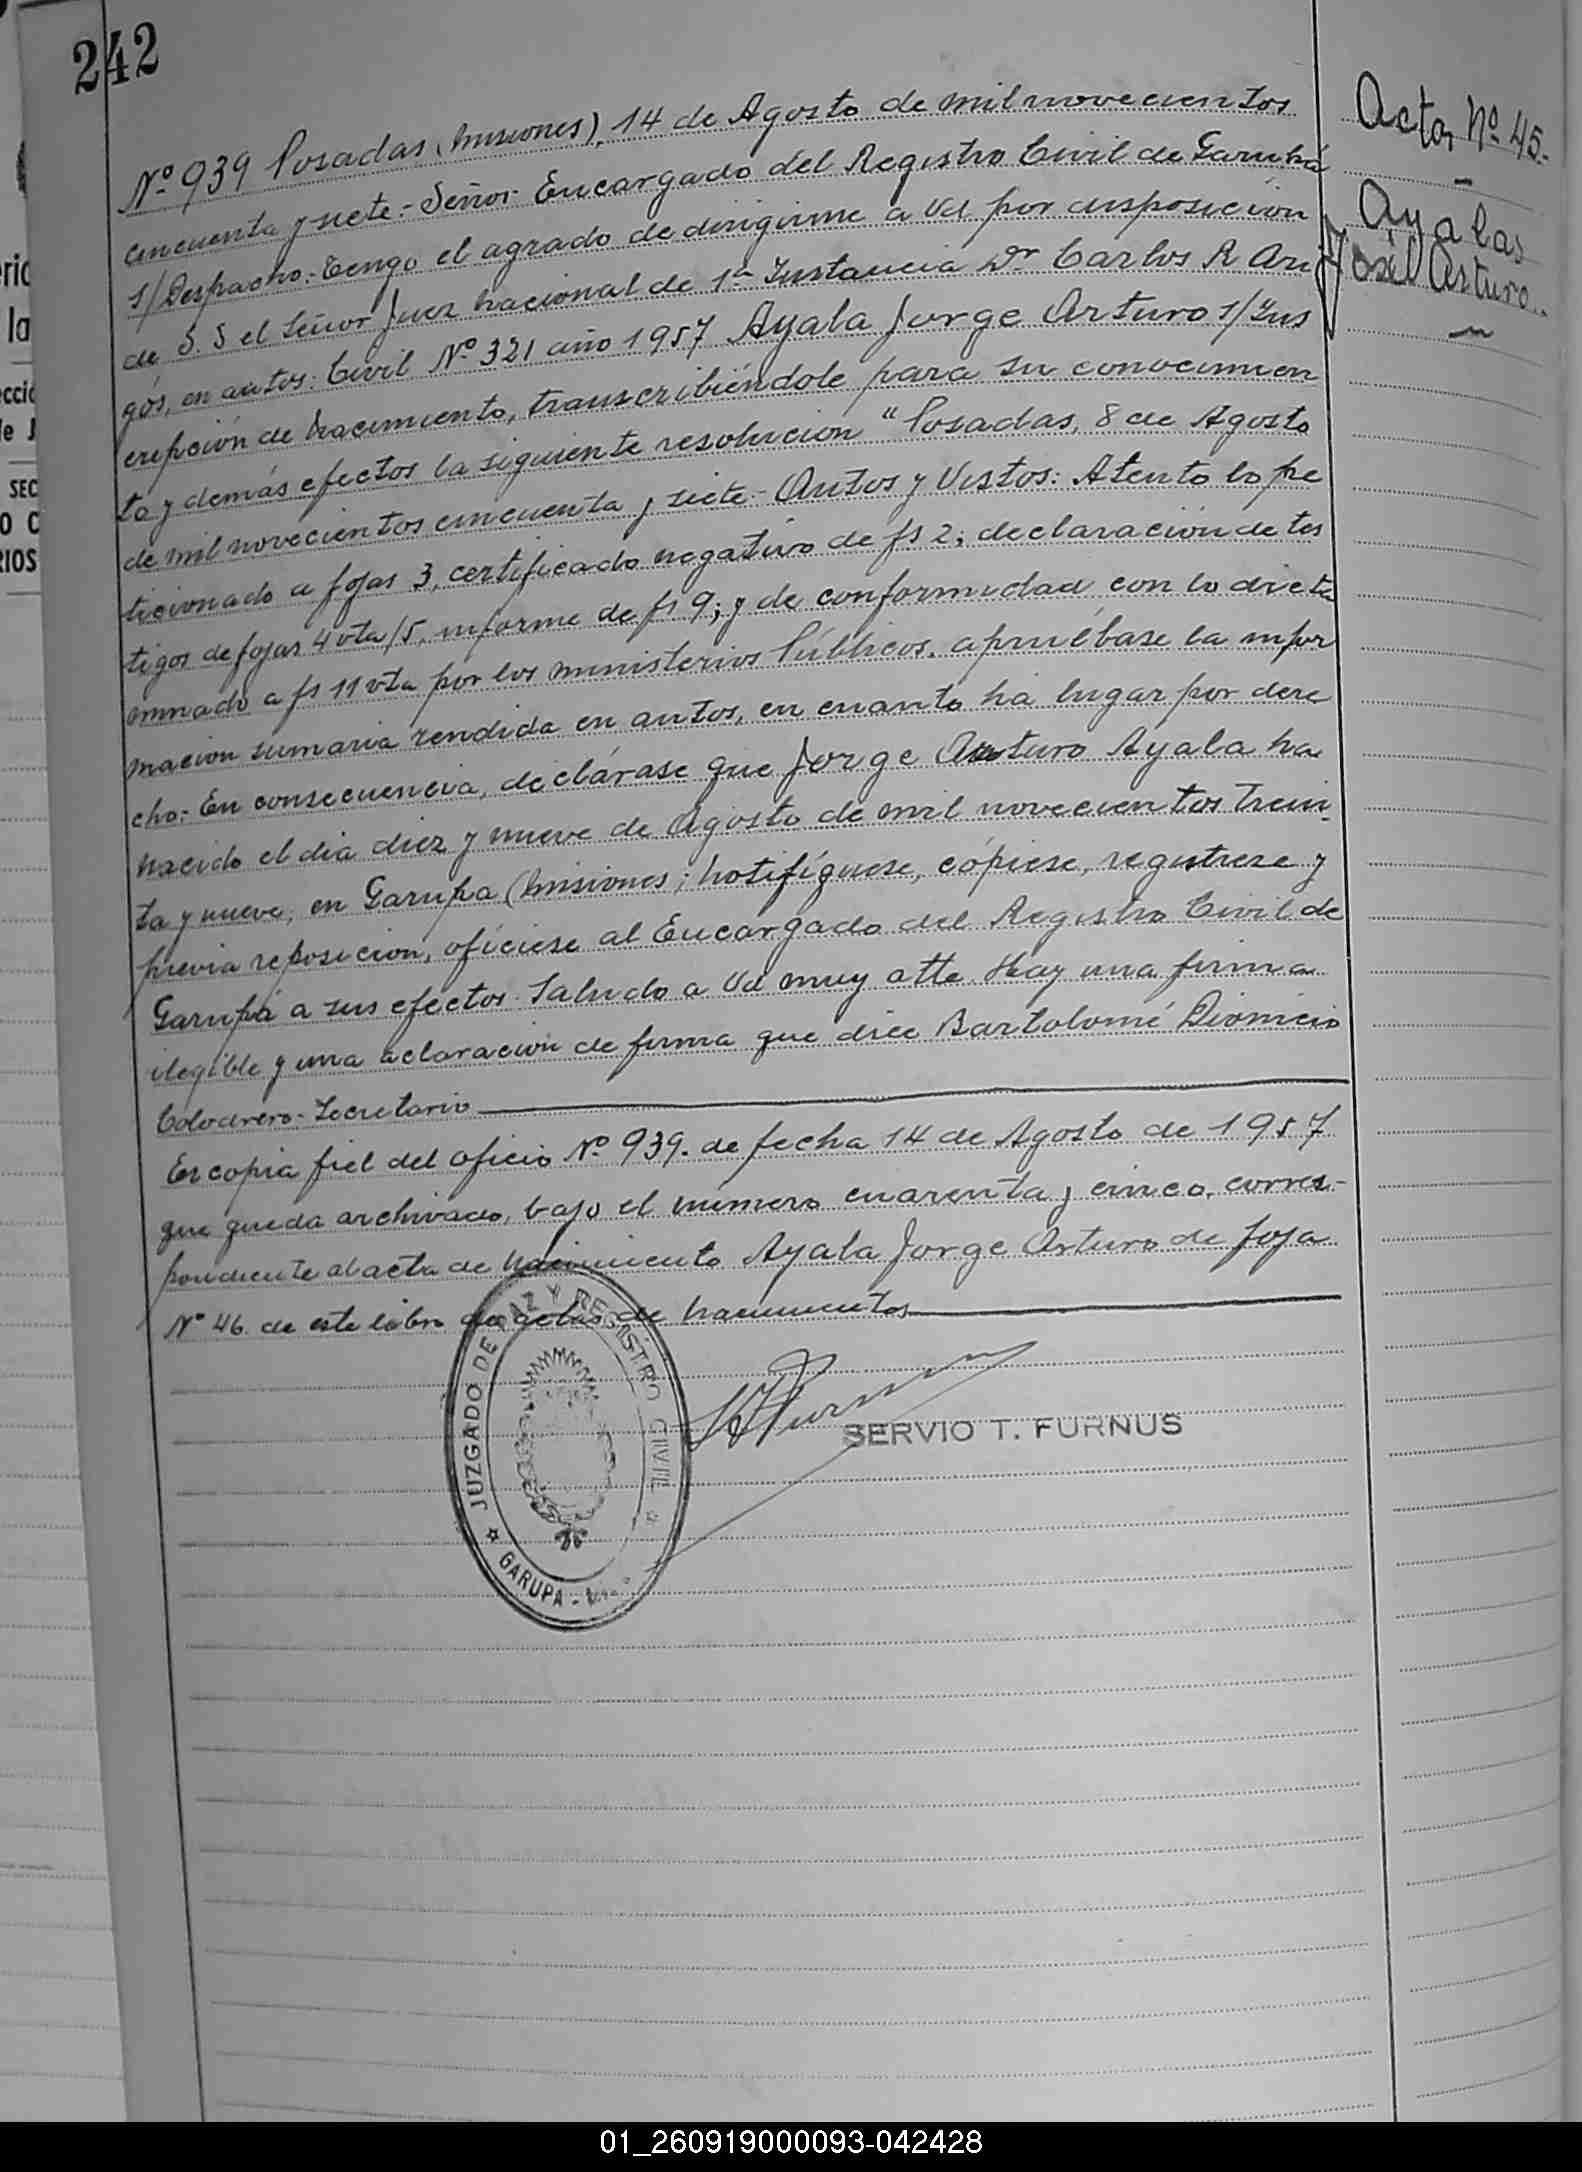 242
Nº 939 Posadas (Misiones), 14 de Agosto de mil novecientos
cincuenta y siete.- Señor Encargado del Registro Civil de Garupá
S/Despacho.- Tengo el agrado de dirigirme a Ud por disposición
de S. S el Señor Juez Nacional de 1ª Instancia Dr Carlos R Arri
gós, en autos: Civil Nº 321 año 1957 Ayala Jorge Arturo s/Ins
cripción de Nacimiento, transcribiéndole para su conocimien
to y demás efectos la siguiente resolución "Posadas, 8 de Agosto
de mil novecientos cincuenta y siete.- Autos y Vistos: Atento lo pe
ticionado a fojas 3, certificado negativo de fs 2; declaración de tes
tigos de fojas 4 vta/5, informe de fs 9; y de conformidad con lo dicta
minado a fs 11 vta por los ministerios Públicos. apruébase la infor
macion sumaria rendida en autos, en cuanto ha lugar por dere
cho.- En consecuencia, declárase que Jorge Arturo Ayala ha
nacido el dia diez y nueve de Agosto de mil novecientos trein
ta y nueve, en Garupa (Misiones; Notifíquese, cópiese, registrese y
previa reposición, ofíciese al Encargado del Registro Civil de
Garupá a sus efectos. Saludo a Ud muy atte. Hay una firma
ilegible y una aclaración de firma que dice Bartolomé Dionicio
Secretario
Es copia fiel del oficio Nº 939. de fecha 14 de Agosto de 1957
que queda archivado, bajo el número cuarenta y cinco, corres-
pondiente al acta de Nacimiento Ayala Jorge Arturo de foja
Nº 46 de este libro de actas de Nacimientos
Acta Nº 45.-
Ayala
Arturo..
JUZGADO DE PAZ Y REGISTRO CIVIL
GARUPA -
SERVIO T. FURNUS
eric
la
ecció
de J
SEC
O C
RIOS
01_260919000093-042428